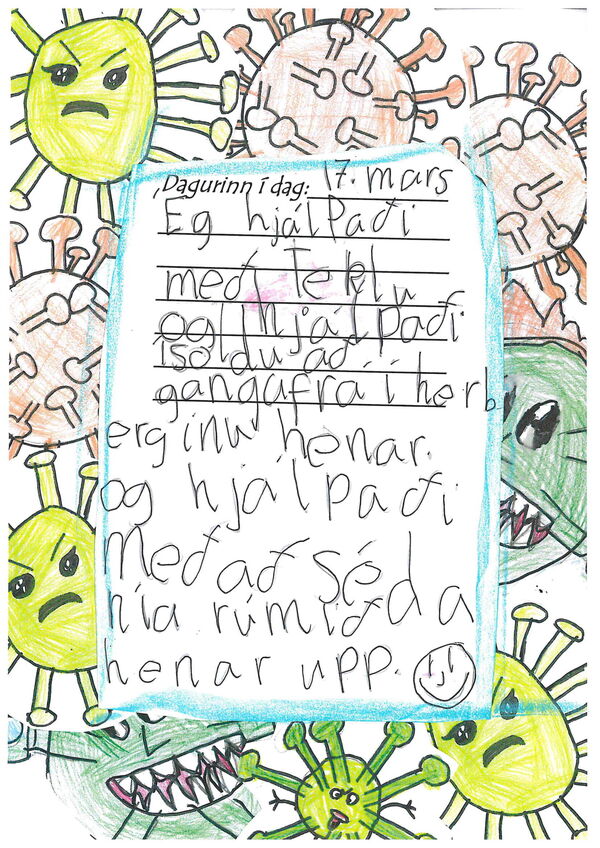 Dagurinn í dag: 17. mars
Eg hjálpaði
með Teklu
og hjálpaði
isoldu að
ganga frá í herb
erginu henar.
og hjálpaði
með að séda
nía rúmið
henar upp.